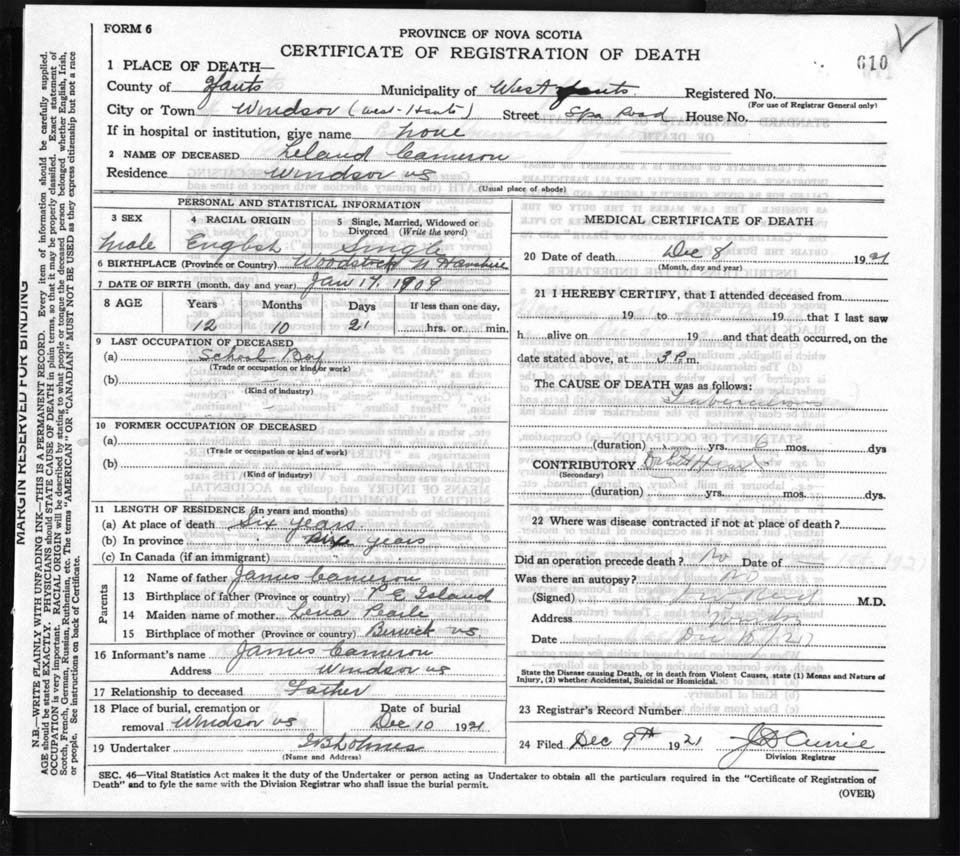 FORM 6
PROVINCE OF NOVA SCOTIA
CERTIFICATE OF REGISTRATION OF DEATH
610
1 PLACE OF DEATH—
County of Hants Municipality of West Hants Registered No.
(For use of Registrar General only)
City or Town Windsor (West-Hants) Street Spa Road House No.
If in hospital or institution, give name none
2 NAME OF DECEASED Leland Cameron
Residence Windsor NS
(Usual place of abode)
PERSONAL AND STATISTICAL INFORMATION
3 SEX 4 RACIAL ORIGIN 5 Single, Married, Widowed or Divorced (Write the word)
Male English Single
6 BIRTHPLACE (Province or Country) Woodstock N Hampshire
7 DATE OF BIRTH (month, day and year) Jan 17, 1909
8 AGE Years Months Days If less than one day,
12 10 21 hrs. or min.
9 LAST OCCUPATION OF DECEASED
(a) School Boy
(Trade or occupation or kind of work)
(b)
(Kind of industry)
10 FORMER OCCUPATION OF DECEASED
(a)
(Trade or occupation or kind of work)
(b)
(Kind of industry)
11 LENGTH OF RESIDENCE (In years and months)
(a) At place of death Six years
(b) In province years
(c) In Canada (if an immigrant)
Parents
12 Name of father James Cameron
13 Birthplace of father (Province or country) P E Island
14 Maiden name of mother Lena
15 Birthplace of mother (Province or country) Berwick NS
16 Informant's name James Cameron
Address Windsor NS
17 Relationship to deceased Father
18 Place of burial, cremation or removal Windsor NS Date of burial Dec 10 1921
19 Undertaker
(Name and Address)
MEDICAL CERTIFICATE OF DEATH
20 Date of death Dec 8 1921
(Month, day and year)
21 I HEREBY CERTIFY, that I attended deceased from
19 to 19 that I last saw
h alive on 19 and that death occurred, on the
date stated above, at 3 P.m.
The CAUSE OF DEATH was as follows:
Tuberculosis
(duration) yrs. 6 mos. dys
CONTRIBUTORY
(Secondary)
(duration) yrs. mos. dys.
22 Where was disease contracted if not at place of death?
Did an operation precede death? No Date of
Was there an autopsy? No
(Signed) M.D.
Address Windsor
Date Dec 10/21
State the Disease causing Death, or in death from Violent Causes, state (1) Means and Nature of
Injury, (2) whether Accidental, Suicidal or Homicidal.
23 Registrar's Record Number
24 Filed Dec 9th 1921 J D Currie
Division Registrar
SEC. 46—Vital Statistics Act makes it the duty of the Undertaker or person acting as Undertaker to obtain all the particulars required in the "Certificate of Registration of
Death" and to fyle the same with the Division Registrar who shall issue the burial permit.
(OVER)
MARGIN RESERVED FOR BINDING
N.B.—WRITE PLAINLY WITH UNFADING INK—THIS IS A PERMANENT RECORD. Every item of information should be carefully supplied.
AGE should be stated EXACTLY. PHYSICIANS should STATE CAUSE OF DEATH in plain terms, so that it may be properly classified. Exact statement of
OCCUPATION is very important. RACIAL ORIGIN will be described by stating to what people or tongue the deceased person belonged whether English, Irish,
Scotch, French, German, Russian, Ruthenian, etc. The terms "AMERICAN" OR "CANADIAN" MUST NOT BE USED as they express citizenship but not a race
or people. See instructions on back of Certificate.